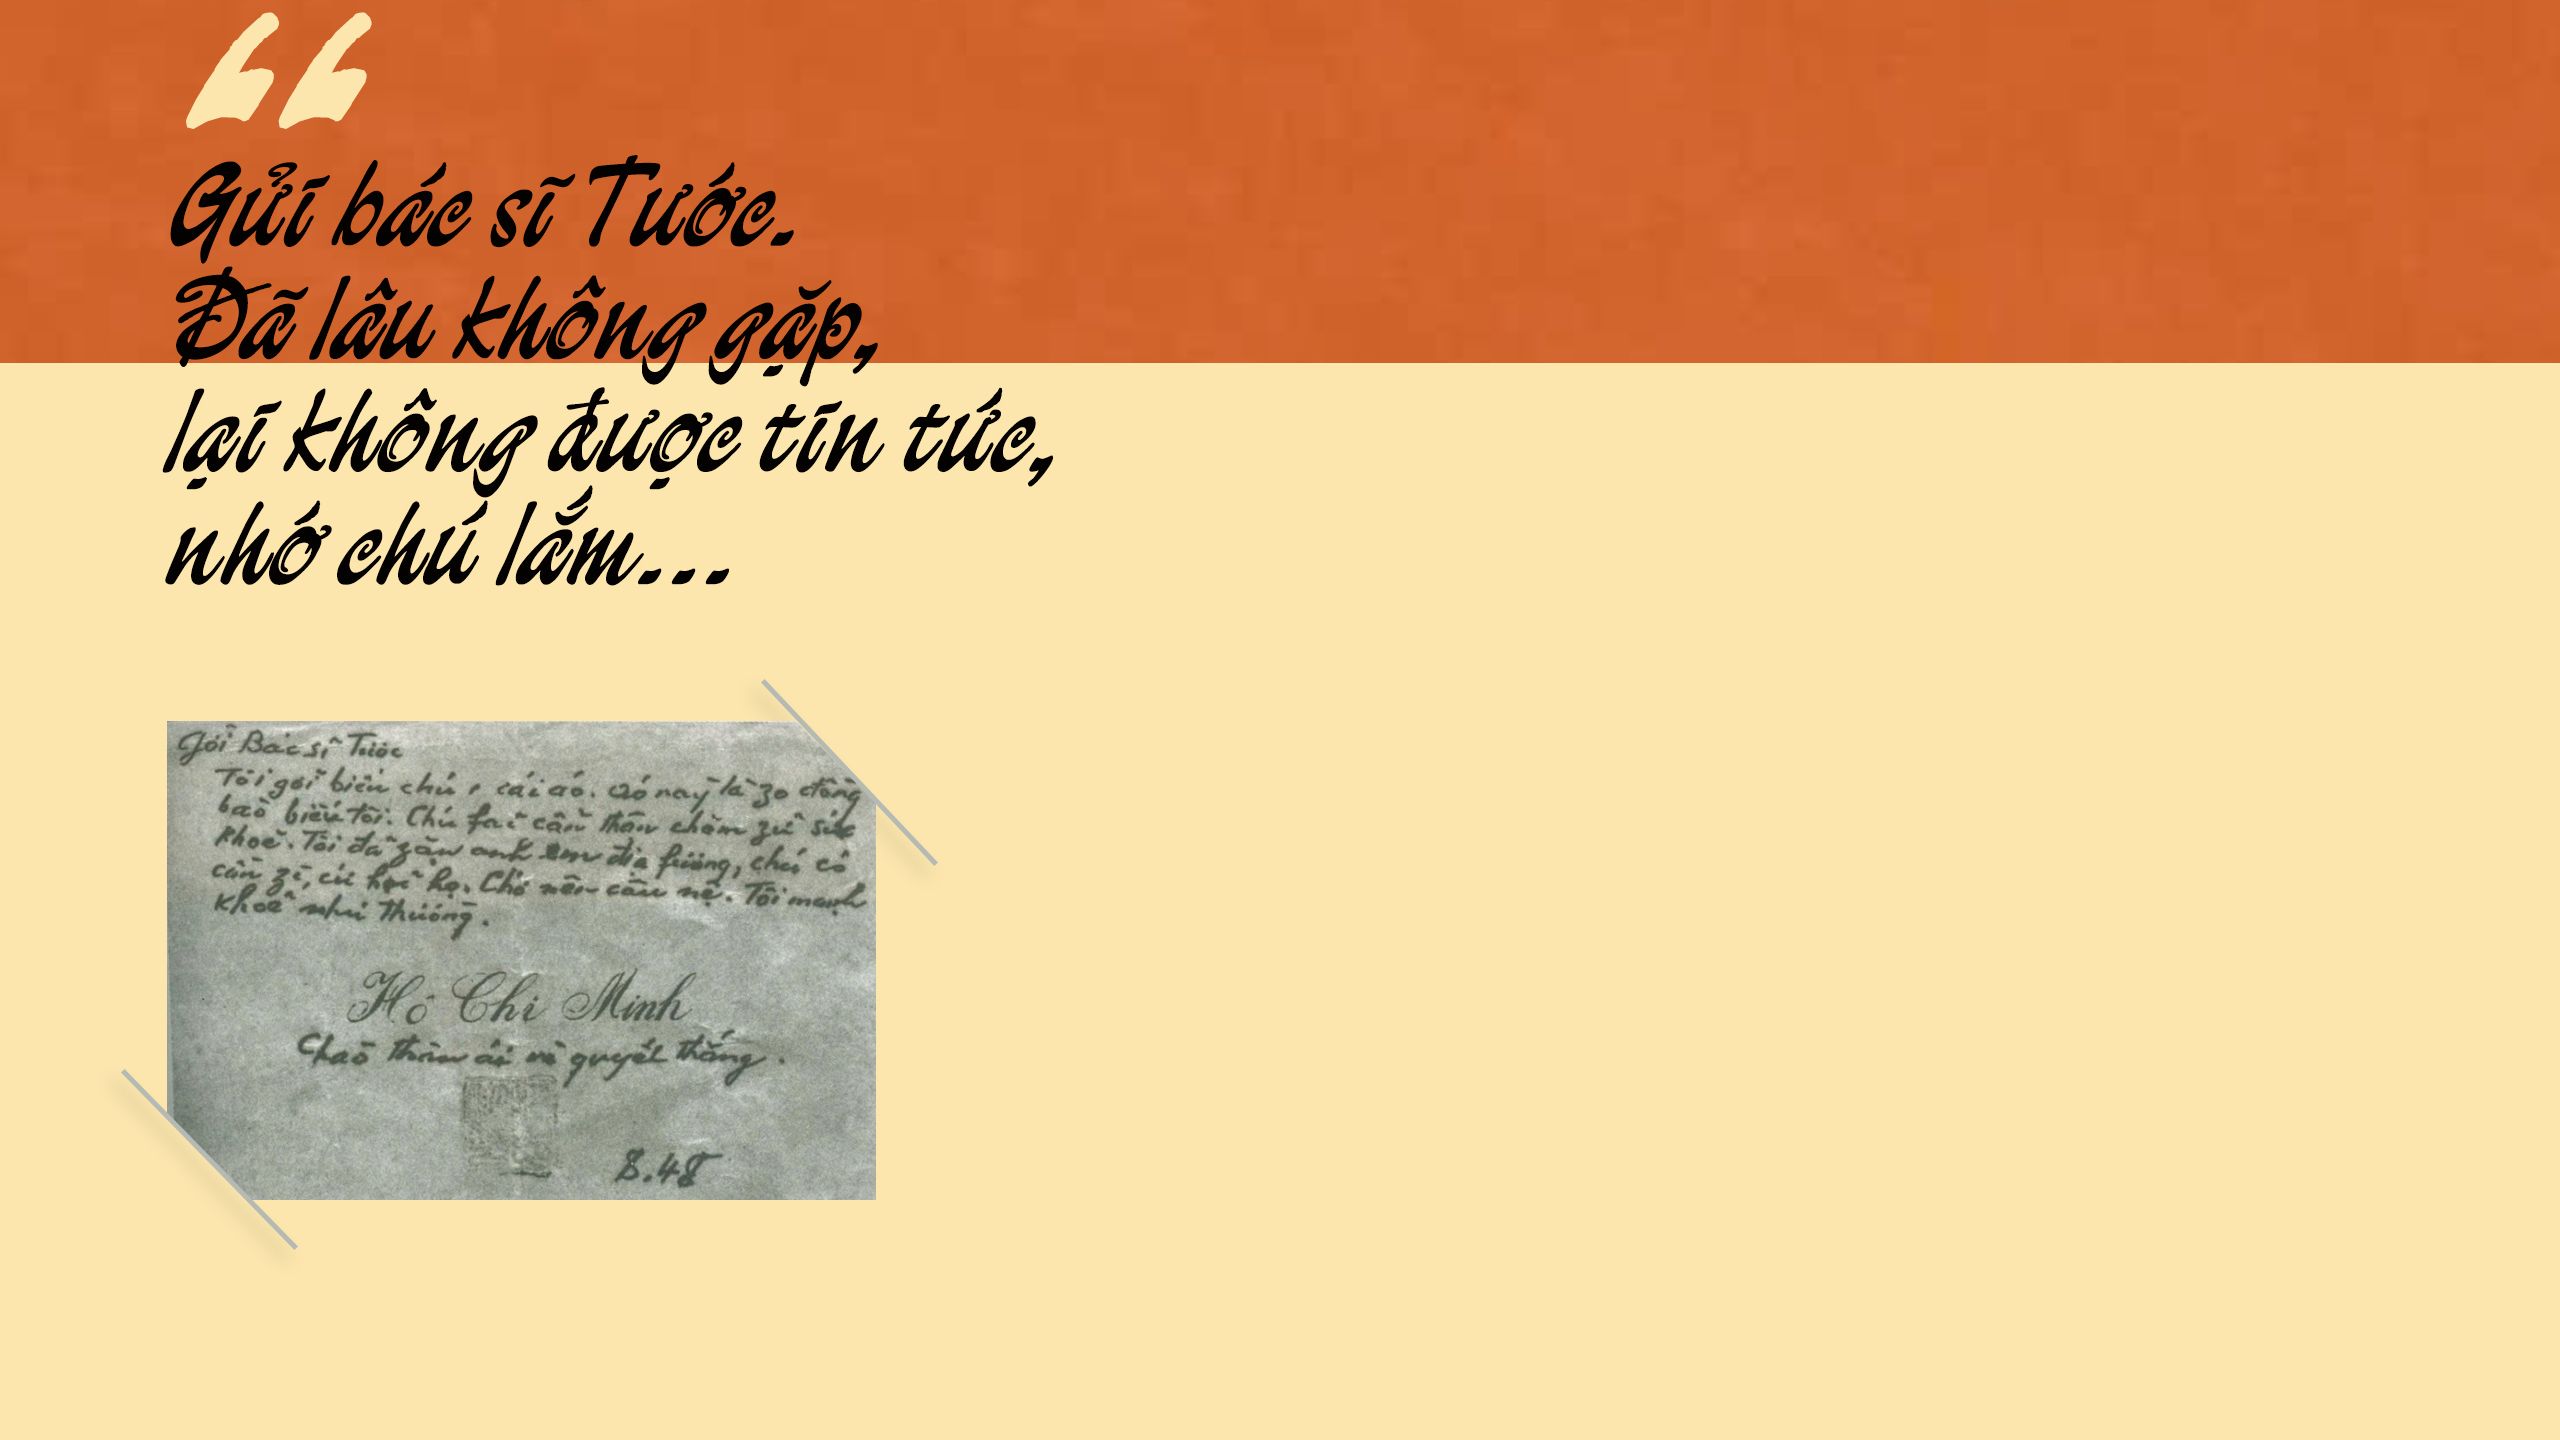 “
Gửi bác sĩ Tước.
Đã lâu không gặp,
lại không được tin tức,
nhớ chú lắm...
Gởi Bác sĩ Tước
Tôi gởi biếu chú 1 cái áo. Áo nay là zo đồng
bào biếu tôi. Chú fải cẩn thận chăm zữ sức
khoẻ. Tôi đã zặn anh em địa fương, chú có
cần zì, cứ hỏi họ. Chớ nên câu nệ. Tôi mạnh
khoẻ như thường.
Hồ Chí Minh
Chào thân ái và quyết thắng.
8.48